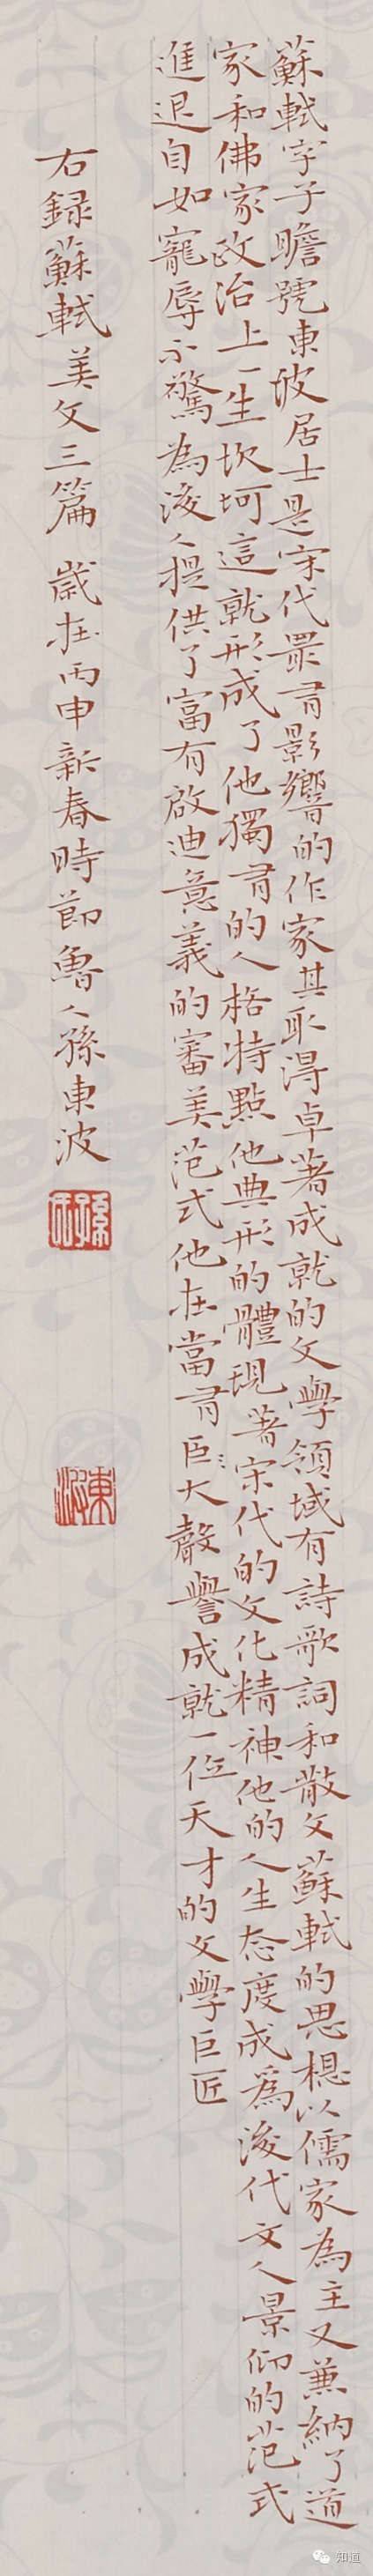 蘇軾字子瞻號東坡居士是宋代最有影響的作家其取得卓著成就的文學領域有詩歌詞和散文蘇軾的思想以儒家為主又兼納了道
家和佛家政治上一生坎坷這就形成了他獨有的人格特點他典形的體現著宋代的文化精神他的人生态度成為後代文人景仰的范式
進退自如寵辱不驚為後人提供了富有啟迪意義的審美范式他在當有巨大聲譽成就一位天才的文學巨匠
右録蘇軾美文三篇 歲在丙申新春時節魯人孫東波
知道